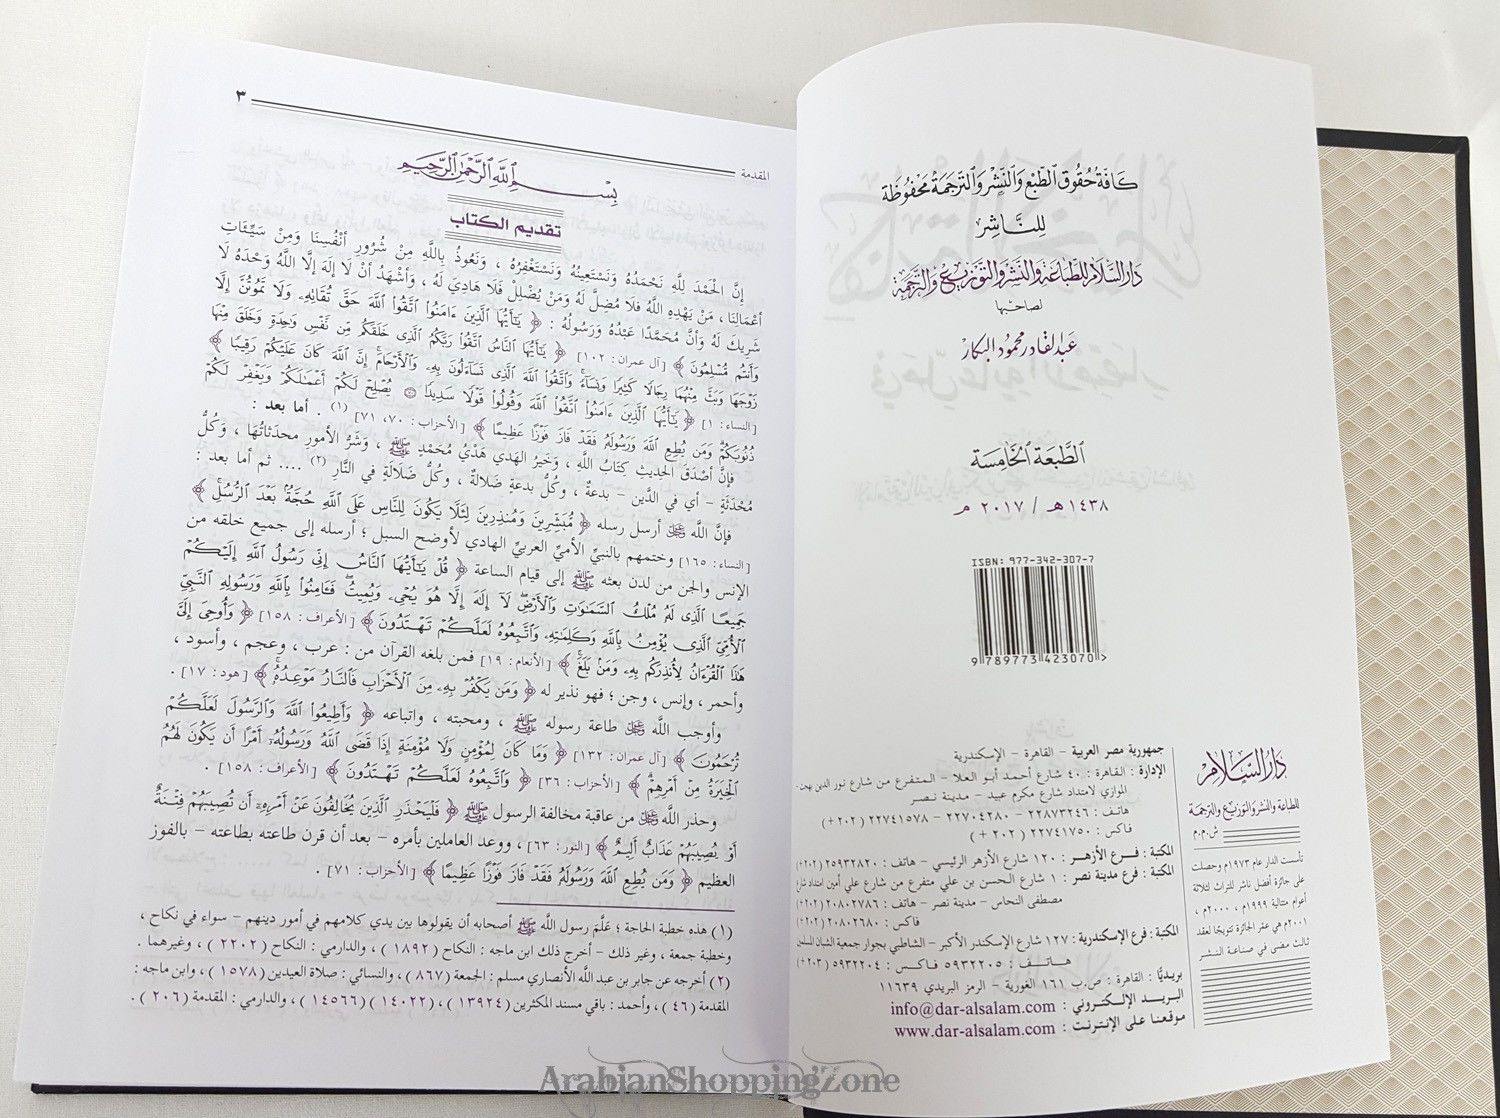 كافة حقوق الطبع والنشر والترجمة محفوظة
للناشر
دار السلام للطباعة والنشر والتوزيع والترجمة
لصاحبها
عبد القادر محمود البكار
الطبعة الخامسة
١٤٣٨ هـ / ٢٠١٧ م
ISBN: 977-342-307-7
9 789773 423070 >
دار السلام
للطباعة والنشر والتوزيع والترجمة
ش.م.م
تأسست الدار عام ١٩٧٣م وحصلت
على جائزة أفضل ناشر للتراث لثلاثة
أعوام متتالية ١٩٩٩م ، ٢٠٠٠م ،
٢٠٠١م هي عقر الجائزة تتويجًا لعقد
ثالث مضى في صناعة النشر
جمهورية مصر العربية – القاهرة – الإسكندرية
الإدارة : القاهرة : ٤٠ شارع أحمد أبو العلا – المتفرع من شارع نور الدين بهجت -
الموازي لامتداد شارع مكرم عبيد – مدينة نصر
هاتف : ٢٢٨٧٣٢٤٦ – ٢٢٧٠٤٢٨٠ – ٢٢٧٤١٥٧٨ ( ٢٠٢ + )
فاكس : ٢٢٧٤١٧٥٠ ( ٢٠٢ + )
المكتبة : فرع الأزهر : ١٢٠ شارع الأزهر الرئيسي – هاتف : ٢٥٩٣٢٨٢٠ (٢٠٢+)
المكتبة : فرع مدينة نصر : ١ شارع الحسن بن علي متفرع من شارع علي أمين امتداد شارع
مصطفى النحاس – مدينة نصر – هاتف : ٢٠٨٠٢٧٨٦ (٢٠٢+)
فاكس : ٢٠٨٠٢٦٨٠ (٢٠٢+)
المكتبة : فرع الإسكندرية : ١٢٧ شارع الإسكندر الأكبر – الشاطبي بجوار جمعية الشبان المسلمين
هاتف : ٥٩٣٢٢٠٥ فاكس : ٥٩٣٢٢٠٤ (٢٠٣+)
بريديًا : القاهرة : ص.ب ١٦١ الغورية – الرمز البريدي ١١٦٣٩
البريد الإلكتروني : info@dar-alsalam.com
موقعنا على الإنترنت : www.dar-alsalam.com
المقدمة ٣
بسم الله الرحمن الرحيم
تقديم الكتاب
إنَّ الحَمْدَ لِلَّهِ نَحْمَدُهُ وَنَسْتَعِينُهُ وَنَسْتَغْفِرُهُ ، وَنَعُوذُ بِاللَّهِ مِنْ شُرُورِ أنْفُسِنَا وَمِنْ سَيِّئَاتِ
أعْمَالِنَا ، مَنْ يَهْدِهِ اللَّهُ فَلَا مُضِلَّ لَهُ وَمَنْ يُضْلِلْ فَلَا هَادِيَ لَهُ ، وَأشْهَدُ أنْ لَا إلَهَ إلَّا اللَّهُ وَحْدَهُ لَا
شَرِيكَ لَهُ وَأنَّ مُحَمَّدًا عَبْدُهُ وَرَسُولُهُ : ﴿ يَٰٓأَيُّهَا ٱلَّذِينَ ءَامَنُوا۟ ٱتَّقُوا۟ ٱللَّهَ حَقَّ تُقَاتِهِۦ وَلَا تَمُوتُنَّ إِلَّا
وَأَنتُم مُّسْلِمُونَ ﴾ [ آل عمران : ١٠٢ ] ﴿ يَٰٓأَيُّهَا ٱلنَّاسُ ٱتَّقُوا۟ رَبَّكُمُ ٱلَّذِى خَلَقَكُم مِّن نَّفْسٍ وَٰحِدَةٍ وَخَلَقَ مِنْهَا
زَوْجَهَا وَبَثَّ مِنْهُمَا رِجَالًا كَثِيرًا وَنِسَآءً ۚ وَٱتَّقُوا۟ ٱللَّهَ ٱلَّذِى تَسَآءَلُونَ بِهِۦ وَٱلْأَرْحَامَ ۚ إِنَّ ٱللَّهَ كَانَ عَلَيْكُمْ رَقِيبًا ﴾
[النساء : ١] ﴿ يَٰٓأَيُّهَا ٱلَّذِينَ ءَامَنُوا۟ ٱتَّقُوا۟ ٱللَّهَ وَقُولُوا۟ قَوْلًا سَدِيدًا يُصْلِحْ لَكُمْ أَعْمَٰلَكُمْ وَيَغْفِرْ لَكُمْ
ذُنُوبَكُمْ ۗ وَمَن يُطِعِ ٱللَّهَ وَرَسُولَهُۥ فَقَدْ فَازَ فَوْزًا عَظِيمًا ﴾ [الأحزاب : ٧٠، ٧١] (١) . أما بعد :
فإنَّ أصْدَقَ الحديثِ كتَابُ اللَّهِ ، وَخَيرُ الهَدي هَدْيُ مُحَمَّدٍ ﷺ ، وَشَرُّ الأمورِ محدَثاتُهَا ، وَكُلُّ
مُحْدَثَةٍ – أي في الدِّين – بدعةٌ ، وكُلُّ بدعةٍ ضَلالة ، وكُلُّ ضَلَالَةٍ في النَّارِ (٢) .... ثم أما بعد :
فإنَّ اللَّه ﷻ أرسل رسله ﴿ مُّبَشِّرِينَ وَمُنذِرِينَ لِئَلَّا يَكُونَ لِلنَّاسِ عَلَى ٱللَّهِ حُجَّةٌۢ بَعْدَ ٱلرُّسُلِ ﴾
[النساء : ١٦٥] وختمهم بالنبيِّ الأميِّ العربيِّ الهادي لأوضح السبل ؛ أرسله إلى جميع خلقه من
الإنس والجن من لدن بعثه ﷺ إلى قيام الساعة ﴿ قُلْ يَٰٓأَيُّهَا ٱلنَّاسُ إِنِّى رَسُولُ ٱللَّهِ إِلَيْكُمْ
جَمِيعًا ٱلَّذِى لَهُۥ مُلْكُ ٱلسَّمَٰوَٰتِ وَٱلْأَرْضِ ۖ لَآ إِلَٰهَ إِلَّا هُوَ يُحْىِۦ وَيُمِيتُ ۖ فَـَٔامِنُوا۟ بِٱللَّهِ وَرَسُولِهِ ٱلنَّبِىِّ
ٱلْأُمِّىِّ ٱلَّذِى يُؤْمِنُ بِٱللَّهِ وَكَلِمَٰتِهِۦ وَٱتَّبِعُوهُ لَعَلَّكُمْ تَهْتَدُونَ ﴾ [الأعراف : ١٥٨] ﴿ وَأُوحِىَ إِلَىَّ
هَٰذَا ٱلْقُرْءَانُ لِأُنذِرَكُم بِهِۦ وَمَنۢ بَلَغَ ﴾ [الأنعام : ١٩] فمن بلغه القرآن من : عرب ، وعجم ، وأسود ،
وأحمر ، وإنس ، وجن ؛ فهو نذير له ﴿ وَمَن يَكْفُرْ بِهِۦ مِنَ ٱلْأَحْزَابِ فَٱلنَّارُ مَوْعِدُهُۥ ﴾ [هود : ١٧] .
وأوجب اللَّه ﷻ طاعة رسوله ﷺ ، ومحبته ، واتباعه ﴿ وَأَطِيعُوا۟ ٱللَّهَ وَٱلرَّسُولَ لَعَلَّكُمْ
تُرْحَمُونَ ﴾ [آل عمران : ١٣٢] ﴿ وَمَا كَانَ لِمُؤْمِنٍ وَلَا مُؤْمِنَةٍ إِذَا قَضَى ٱللَّهُ وَرَسُولُهُۥٓ أَمْرًا أَن يَكُونَ لَهُمُ
ٱلْخِيَرَةُ مِنْ أَمْرِهِمْ ﴾ [الأحزاب : ٣٦] ﴿ وَٱتَّبِعُوهُ لَعَلَّكُمْ تَهْتَدُونَ ﴾ [الأعراف : ١٥٨] .
وحذر اللَّه ﷻ من عاقبة مخالفة الرسول ﷺ ﴿ فَلْيَحْذَرِ ٱلَّذِينَ يُخَالِفُونَ عَنْ أَمْرِهِۦٓ أَن تُصِيبَهُمْ فِتْنَةٌ
أَوْ يُصِيبَهُمْ عَذَابٌ أَلِيمٌ ﴾ [النور : ٦٣] ، ووعد العاملين بأمره – بعد أن قرن طاعته بطاعته – بالفوز
العظيم ﴿ وَمَن يُطِعِ ٱللَّهَ وَرَسُولَهُۥ فَقَدْ فَازَ فَوْزًا عَظِيمًا ﴾ [الأحزاب : ٧١] .
(١) هذه خطبة الحاجة ؛ عَلَّمَ رسول اللَّه ﷺ أصحابه أن يقولوها بين يدي كلامهم في أمور دينهم – سواء في نكاح ،
وخطبة جمعة ، وغير ذلك – أخرج ذلك ابن ماجه : النكاح ( ١٨٩٢ ) ، والدارمي : النكاح ( ٢٢٠٢ ) ، وغيرهما .
(٢) أخرجه عن جابر بن عبد اللَّه الأنصاري مسلم : الجمعة (٨٦٧) ، والنسائي : صلاة العيدين (١٥٧٨) ، وابن ماجه :
المقدمة ( ٤٦ ) ، وأحمد : باقي مسند المكثرين ( ١٣٩٢٤ ) ، ( ١٤٠٢٢ ) ( ١٤٥٦٦ ) ، والدارمي : المقدمة ( ٢٠٦ ) .
ArabianShoppingZone